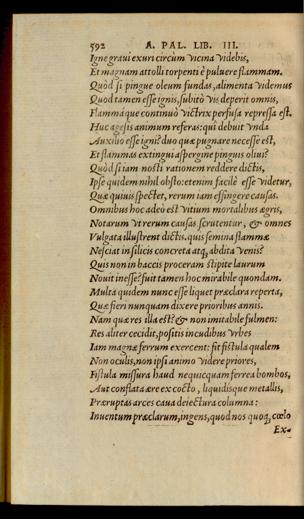 592 A. PAL. LIB. III.
Igne graui exuri circùm vicina videbis,
Et magnam attolli torpenti è puluere flammam.
Quòd si pingue oleum fundas, alimenta videmus
Quod tamen esse ignis, subitò vis deperit omnis,
Flammáque continuò victrix perfusa repressa est.
Huc agesis animum referas: qui debuit vnda
Auxilio esse igni? duo quæ pugnare necesse est,
Et flammas extingui aspergine pinguis oliui?
Quòd si iam nosti rationem reddere dictis,
Ipse quidem nihil obsto: etenim facilè esse videtur,
Quæ quiuis spectet, rerum iam effingere causas.
Omnibus hoc adeò est vitium mortalibus ægris,
Notarum vt rerum causas scrutentur, & omnes
Vulgata illustrent dictis. quis semina flammæ
Nesciat in silicis concreta atq; abdita venis?
Quis non in baccis proceram stipite laurum
Nouit inesse? fuit tamen hoc mirabile quondam.
Multa quidem nunc esse liquet præclara reperta,
Quæ fieri nunquam dixere prioribus annis.
Nam quæ res illa est? & non imitabile fulmen:
Res aliter cecidit, positis incudibus vrbes
Iam magnæ ferrum exercent: fit fistula qualem
Non oculis, non ipsi animo videre priores,
Fistula missura haud nequicquam ferrea bombos,
Aut conflata ære ex cocto, liquidisque metallis,
Præruptas arces caua deiectura columna:
Inuentum præclarum, ingens, quod nos quoq; cœlo
Ex-